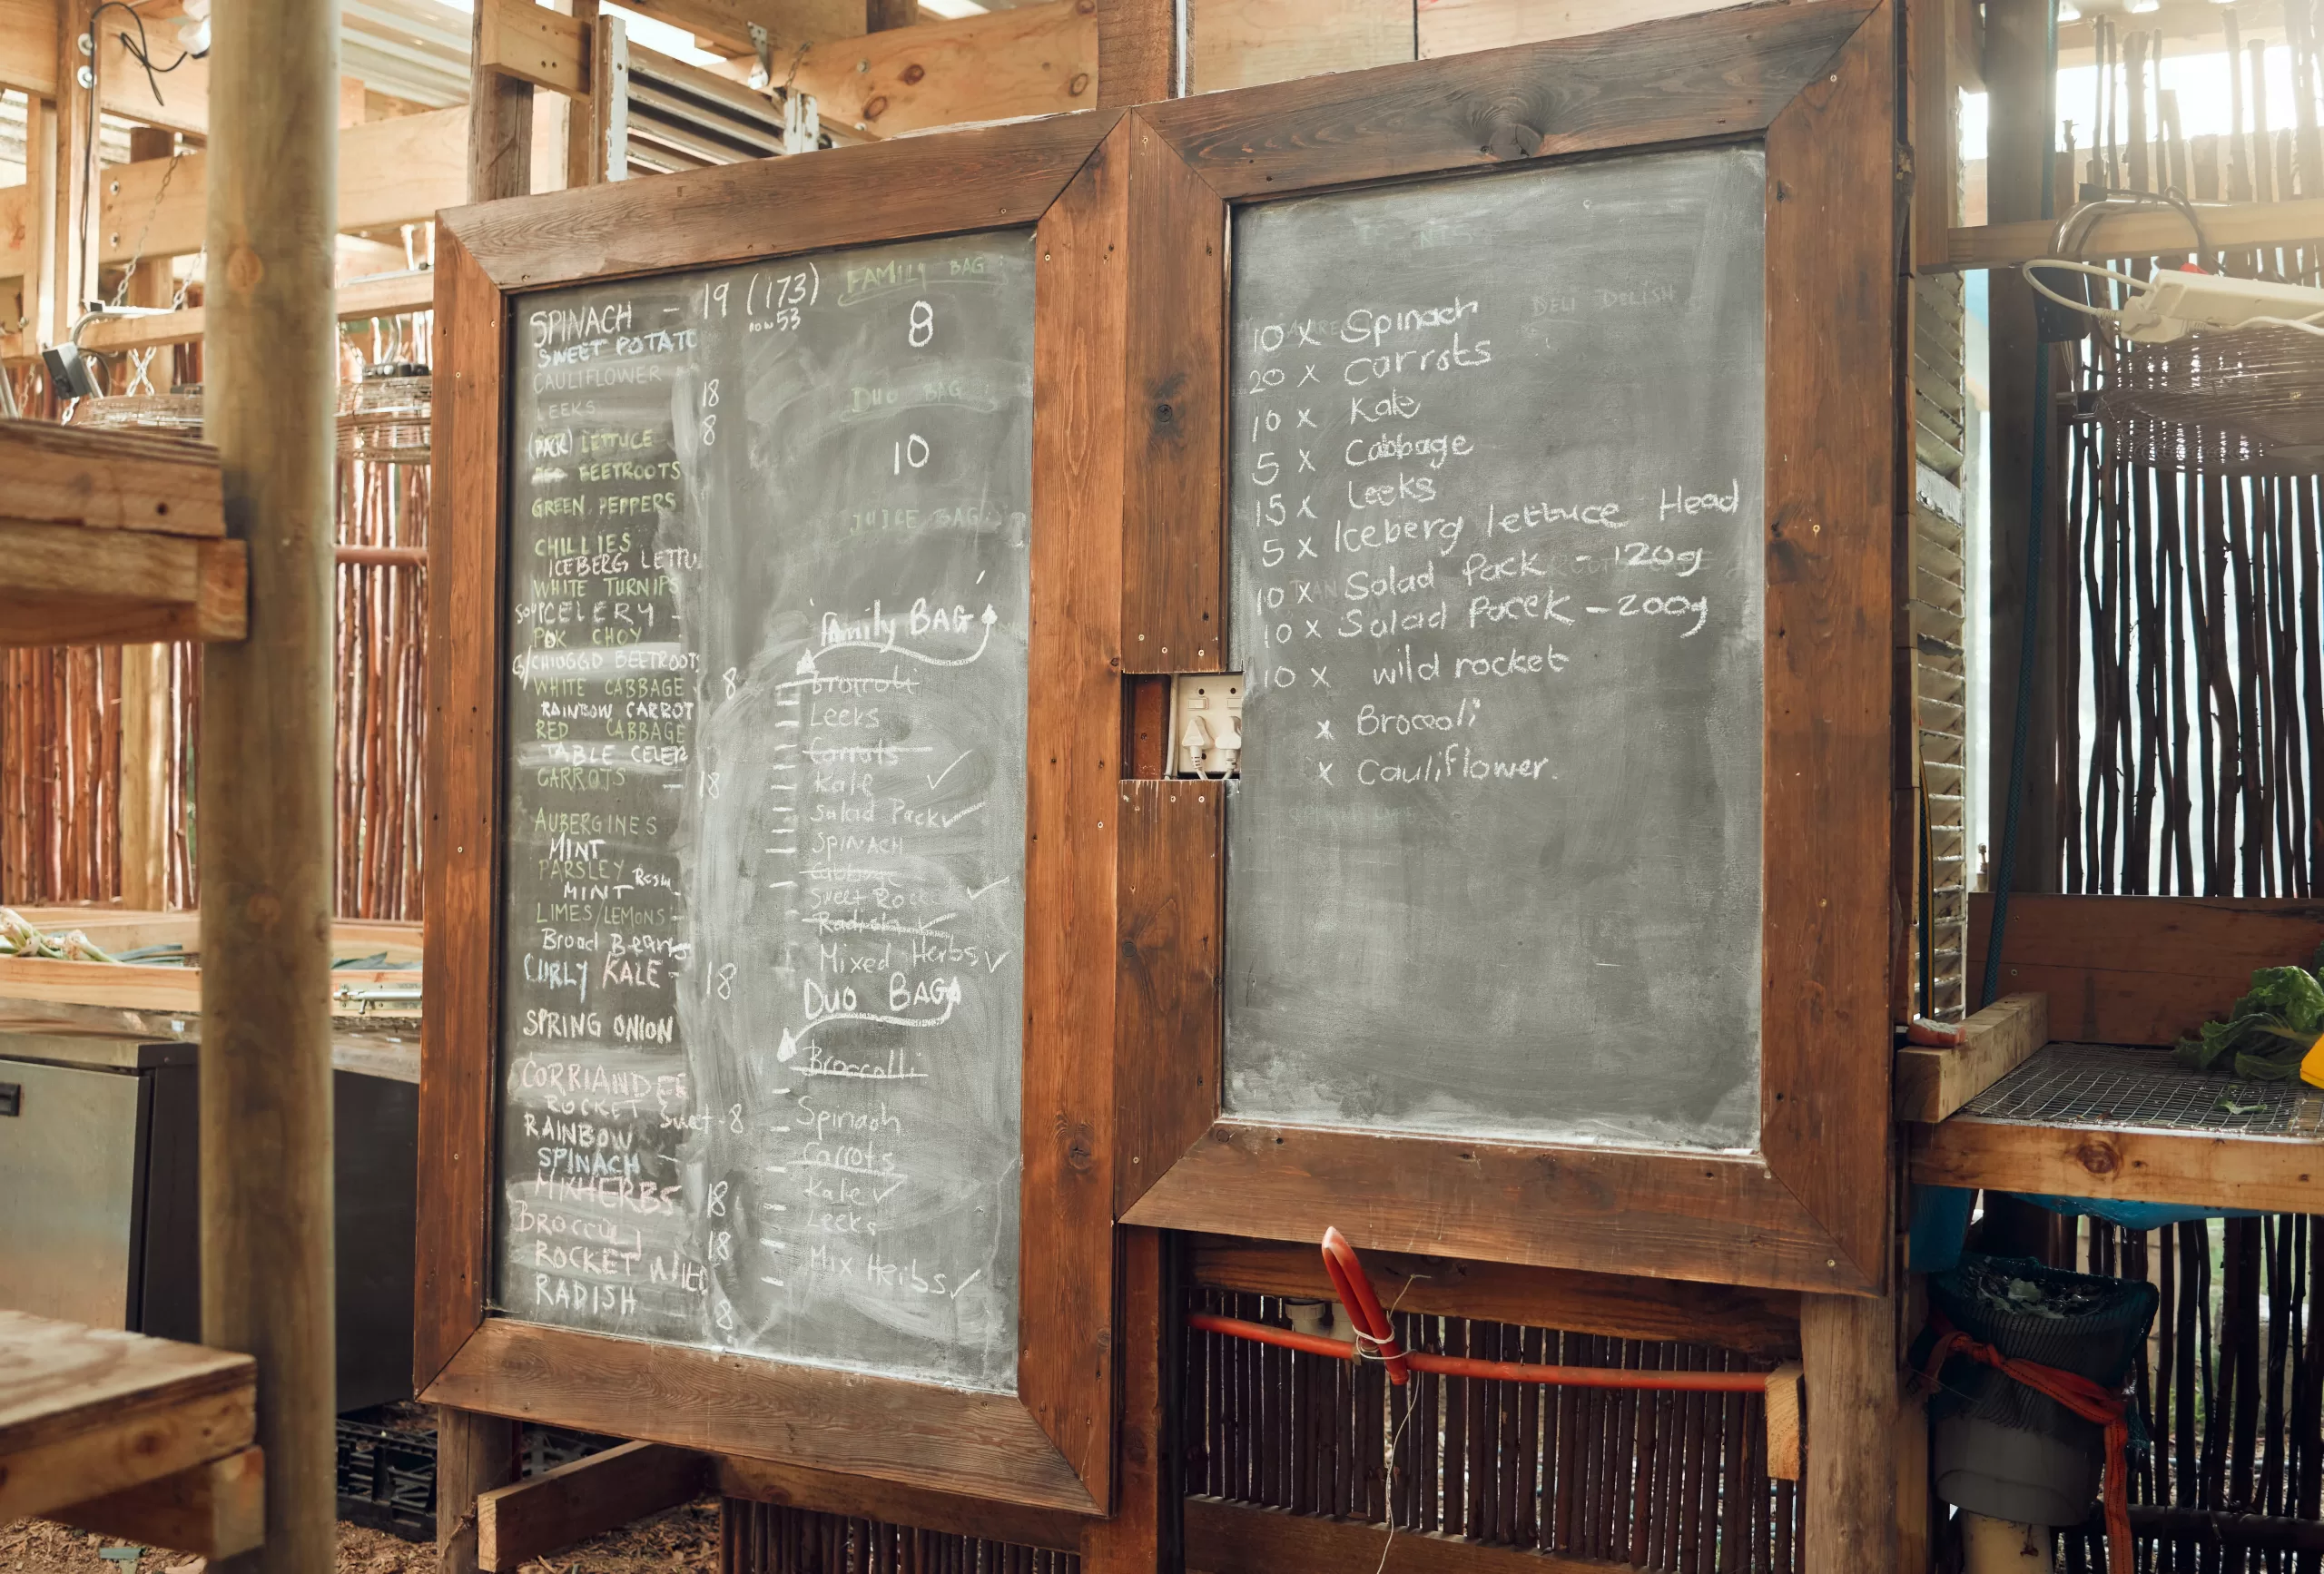 SPINACH - 19 (173)
now 53
SWEET POTATO
CAULIFLOWER 18
LEEKS 8
(PACK) LETTUCE
BEETROOTS
GREEN PEPPERS
CHILLIES
ICEBERG LETTU
WHITE TURNIPS
SOUP CELERY -
POK CHOY
G/CHIOGGD BEETROOTS
WHITE CABBAGE 8
RAINBOW CARROT
RED CABBAGE
TABLE CELER
CARROTS - 18
AUBERGINES
MINT
PARSLEY
MINT
LIMES/LEMONS -
Broad Beans
CURLY KALE - 18
SPRING ONION
CORRIANDER
ROCKET Sweet - 8
RAINBOW
SPINACH -
MIXHERBS 18
18
ROCKET WILD
RADISH 8
FAMILY BAG:
8
DUO BAG:
10
JUICE BAG:
Family BAG
Broccoli
- Leeks
- Carrots
- Kale ✓
- Salad Pack ✓
- SPINACH
- Cabbage
- Sweet Rocket ✓
- Radish ✓
Mixed Herbs ✓
DUO BAG
Broccolli
- Spinach
- Carrots
- Kale ✓
- Leeks
- Mix Herbs ✓
DELI DELISH
10 x Spinach
20 x Carrots
10 x Kale
5 x Cabbage
15 x Leeks
5 x Iceberg lettuce Head
10 x Salad Pack - 120g
10 x Salad Pacek - 200g
10 x wild rocket
x Broccoli
x Cauliflower.